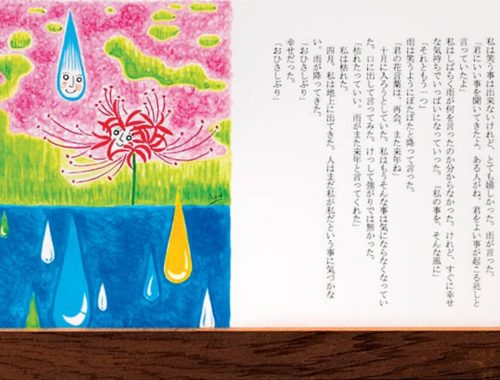 私は笑う事は出来ないけれど、とても嬉しかった。雨が言った。
「君にいい事を聞いてきたよ。ある人がね、君をよい事が起こる兆しと
言っていたよ」
私はしばらく雨が何を言ったのか分からなかった。けれど、すぐに幸せ
な気持ちでいっぱいになっていった。「私の事を、そんな風に」
「それともう一つ」
雨は笑うようにぽたぽたと降って言った。
「君の花言葉は、再会、また来年ね」
十月に入ろうとしていた。私はもうそんな事は気にならなくなってい
た。口に出して言ってみた。けっして強がりでは無かった。
「枯れたっていい、雨がまた来年と言ってくれた」
私は枯れた。
四月、私は地上に出てきた。人はまだ私が私だという事に気づかな
い。雨が降ってきた。
「おひさしぶり」
幸せだった。
「おひさしぶり」